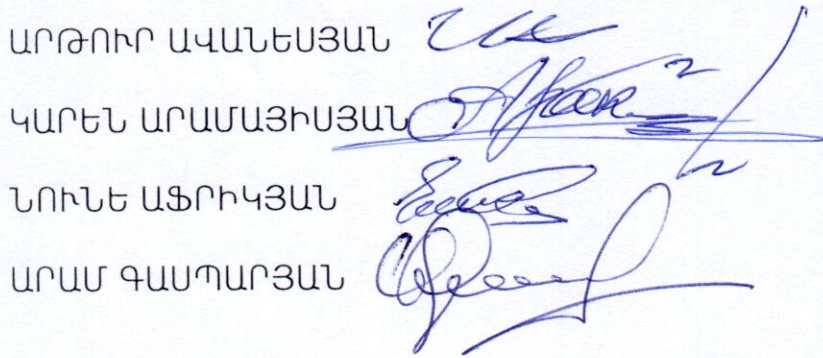 ԱՐԹՈՒՐ ԱՎԱՆԵՍՅԱՆ
ԿԱՐԵՆ ԱՐԱՄԱՅԻՍՅԱՆ
ՆՈՒՆԵ ԱՖՐԻԿՅԱՆ
ԱՐԱՄ ԳԱՍՊԱՐՅԱՆ